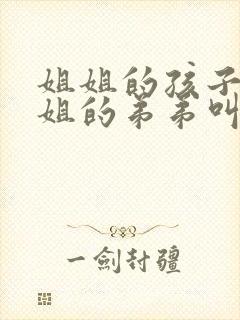 姐姐的孩子
姐的弟弟叫
一劍封疆